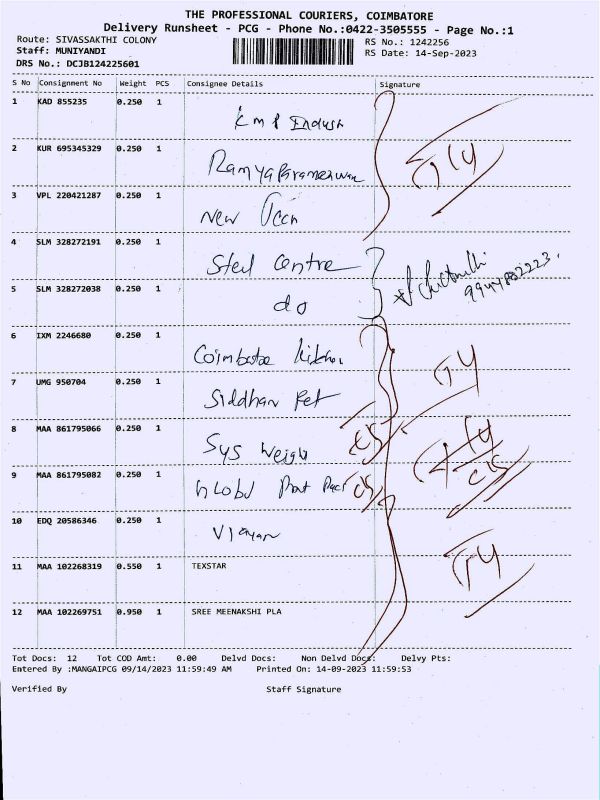 THE PROFESSIONAL COURIERS, COIMBATORE
Delivery Runsheet - PCG - Phone No.:0422-3505555 - Page No.:1
Route: SIVASSAKTHI COLONY RS No.: 1242256
Staff: MUNIYANDI RS Date: 14-Sep-2023
DRS No.: DCJB124225601
S No Consignment No Weight PCS Consignee Details Signature
1 KAD 855235 0.250 1
KMP Indust
2 KUR 695345329 0.250 1
Ramya Parameswari
3 VPL 220421287 0.250 1
New Tech
4 SLM 328272191 0.250 1
Steel Centre
5 SLM 328272038 0.250 1
do
6 IXM 2246680 0.250 1
Coimbatore Kitchen
7 UMG 950704 0.250 1
Siddhan Pet
8 MAA 861795066 0.250 1
Sys Weigh
9 MAA 861795082 0.250 1
10 EDQ 20586346 0.250 1
11 MAA 102268319 0.550 1 TEXSTAR
12 MAA 102269751 0.950 1 SREE MEENAKSHI PLA
Tot Docs: 12 Tot COD Amt: 0.00 Delvd Docs: Non Delvd Docs: Delvy Pts:
Entered By :MANGAIPCG 09/14/2023 11:59:49 AM Printed On: 14-09-2023 11:59:53
Verified By Staff Signature